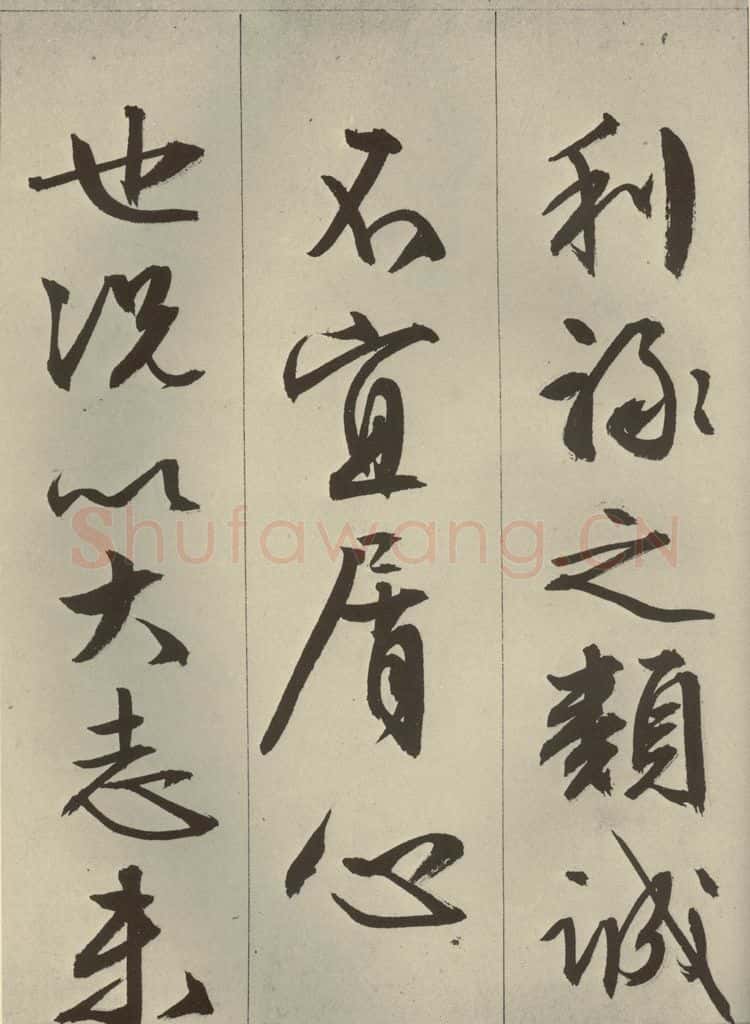 利祿之類誠
不宜屑心
也況以大志未
Shufawang.CN